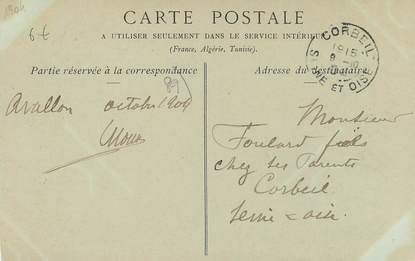 1904
6 €
CARTE POSTALE
A UTILISER SEULEMENT DANS LE SERVICE INTÉRIEUR
(France, Algérie, Tunisie).
Partie réservée à la correspondance
Adresse du destinataire
CORBEIL
1915
8
ET OISE
89
Avallon octobre 1904
Monsieur
Foulard fils
chez ses Parents
Corbeil
Seine & Oise